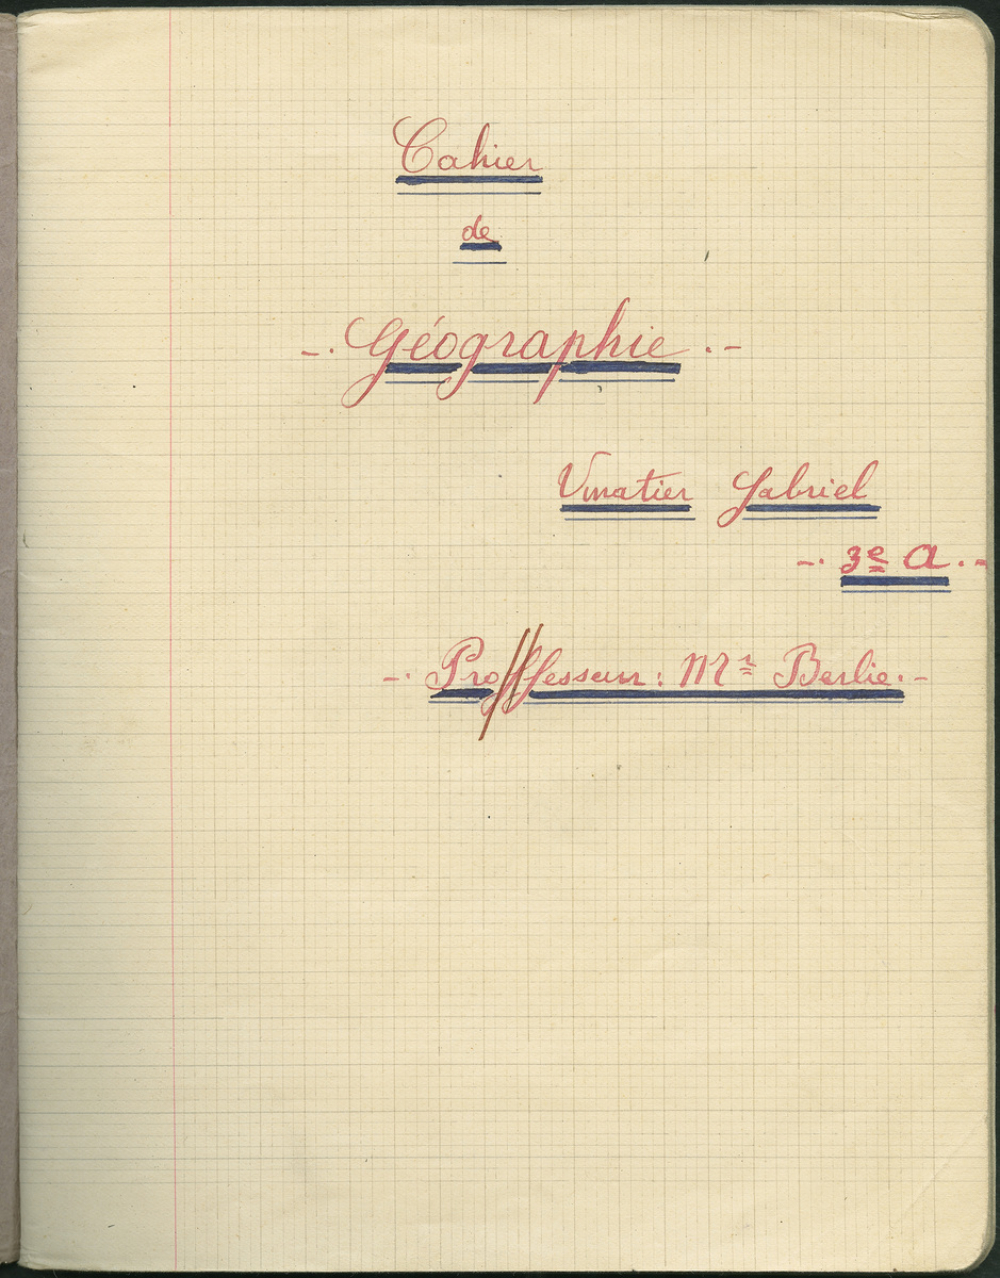 Cahier
de
-. Géographie .-
Vinatier Gabriel
-. 3e A .-
-. Proffesseur : Mr Berlie .-